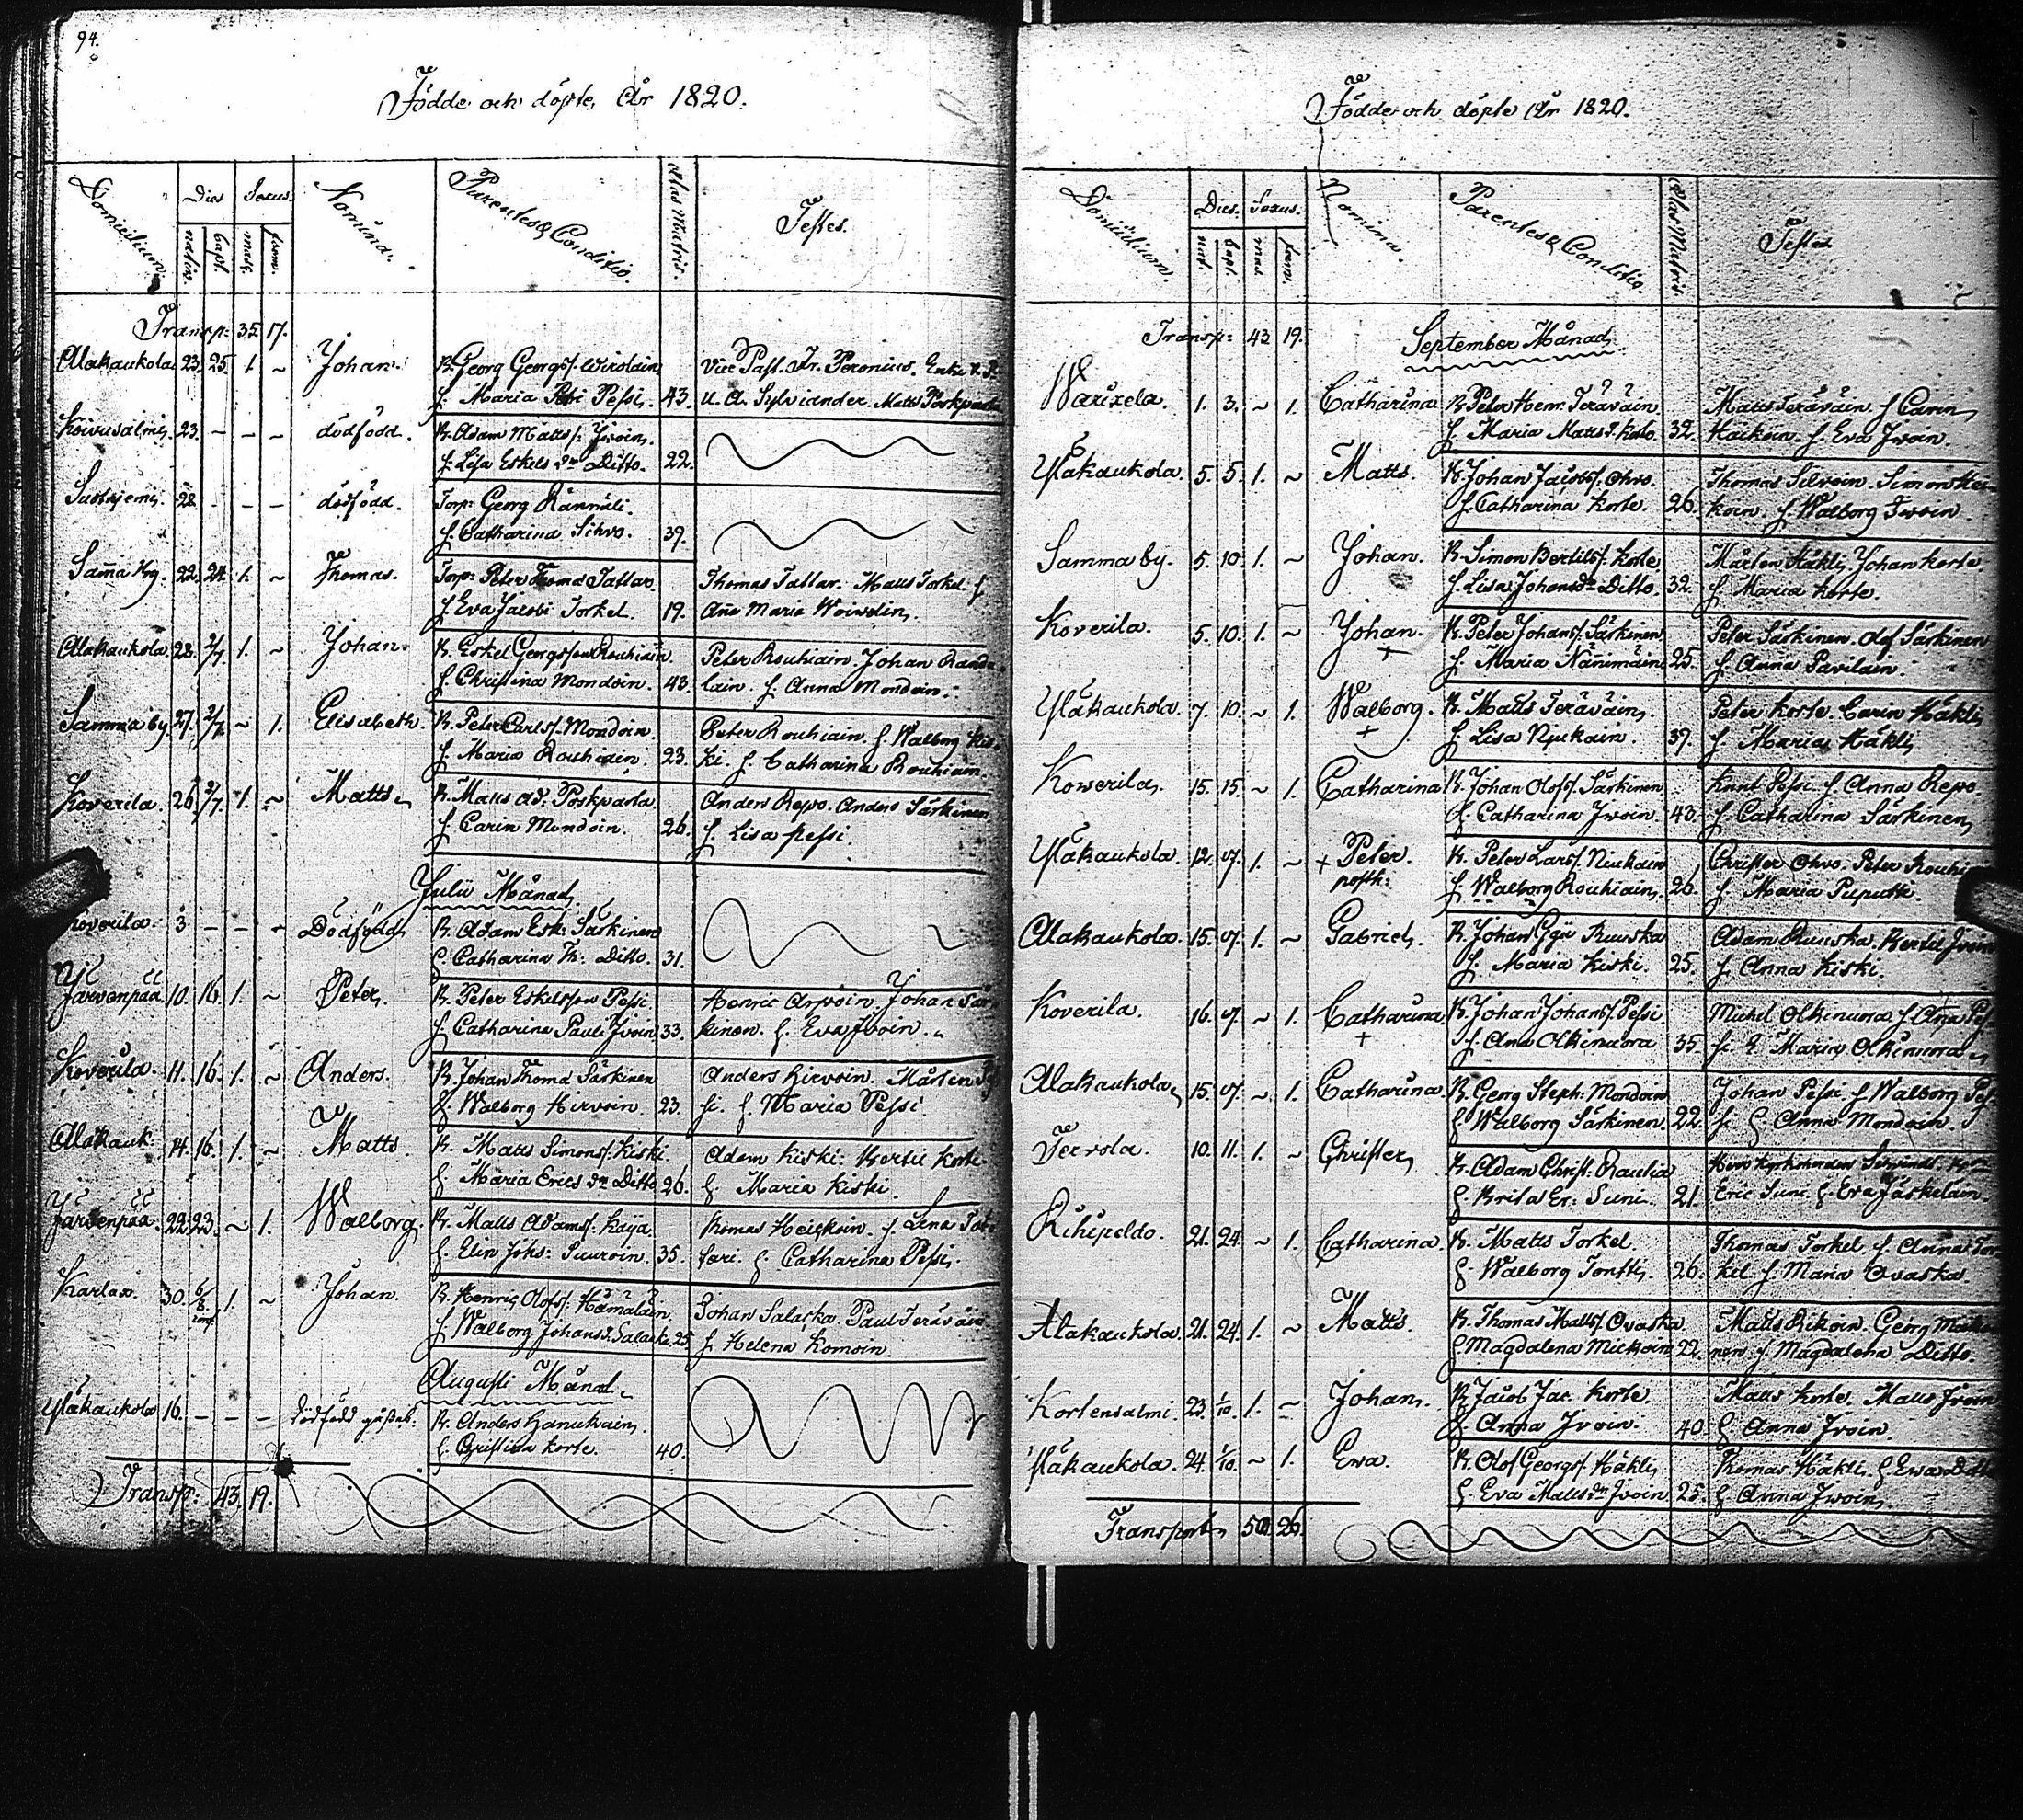 94.
Födde och döpte År 1820.
Domicilium. Dies Sexus. Nomina. Parentes & Conditio. Ætas Matris. Testes.
nativ. bapt. mas. fœm.
Transp: 35. 17.
Alakaukola 23. 25. 1. ~ Johan. B. Georg Georgss. Wirolain
f. Maria Pessi. 43.
Vice Past. Fr. Peronius.
u. A. Sylviander. Matts Poskparta
Koivusalmi. 23. - - - dödfödd. B. Adam Matts s. Ivoin.
f. Lisa Eskels dr Ditto. 22.
28. - - - dödfödd. Torp: Georg Rännäli.
f. Catharina Sihvo. 39.
Samma Hg. 22. 24. 1. ~ Thomas. Torp: Peter Thomæ Tattar. Thomas Tattar. Matts Torkel. f.
f. Eva Jacobi Torkel. 19. Aña Maria
Alakaukola 28. 2/7. 1. ~ Johan. B. Eskel Georgsson Rouhiain. Peter Rouhiain. Johan Randa-
f. Christina Mondoin. 43. lain. f. Anna Mondoin.
Samma by. 27. 2/7. ~ 1. Elisabeth. B. Peter Carlss. Mondoin. Peter Rouhiain. f. Walborg Kis-
f. Maria Rouhiain. 23. ki. f. Catharina Rouhiain.
Koverila. 26. 2/7. 1. ~ Matts. B. Matts Ad. Poskparta. Anders Repo. Anders Särkinen
f. Carin Mondoin. 26. f. Lisa Pessi.
Julii Månad.
Koverila. 3 - - - Dödfödd. B. Adam Esk: Särkinen
f. Catharina Th: Ditto. 31.
Järvenpää 10. 16. 1. ~ Peter. B. Peter Eskelsson Pessi Henric Arvoin. Johan Sär-
f. Catharina Pauli Ivoin 33. kinen. f. Eva Ivoin.
Koverila. 11. 16. 1. ~ Anders. B. Johan Thomæ Särkinen Anders Hirvoin. Mårten Pes
f. Walborg Hirvoin. 23. si. f. Maria Pessi.
Alakauk: 14. 16. 1. ~ Matts. B. Matts Simonss. Kiski. Adam Kiski. Bertil Korte.
f. Maria Erics dr Ditto 26. f. Maria Kiski.
Järvenpää. 22. 23. ~ 1. Walborg. B. Matts Adamss. Kaija. Thomas Heickoin. f. Lena
f. Elin Johs: Suuroin. 35. f. Catharina Pessi.
Karlax. 30. 6/8 1. ~ Johan. B. Henric Olofss: Hämäläin. Johan Salacka. Paul Teräväin
f. Walborg Johansd. Salacka. 25 f. Helena Komoin.
Augusti Månad.
Yläkaukola 16. - - - Dödfödd gåßeb. B. Anders Hanukain.
f. Christina Korte. 40.
Transp: 43. 19.
Födde och döpte År 1820.
Domicilium. Dies. Sexus. Nomina. Parentes & Conditio. Ætas Matris. Testes
nat. bapt. mas. fœm.
Transp: 43 19. September Månad.
Warixela. 1. 3. ~ 1. Catharina B. Peter Henr. Teräväin. Matts Teräväin. f. Carin
f. Maria Matts d. Korte 32. Häckoin. f. Eva Ivoin.
Yläkaukola. 5. 5. 1. ~ Matts. B. Johan Jacobss. Ohvo. Thomas Silvoin. Simon Hei-
f. Catharina Korte. 26. koin. f. Walborg Ivoin.
Samma by. 5. 10. 1. ~ Johan. B. Simon Bertilss. Korte Mårten Häkli, Johan Korte
f. Lisa Johans dr Ditto. 32. f. Maria Korte.
Koverila. 5. 10. 1. ~ Johan. + B. Peter Johanss. Särkinen Peter Särkinen. Olof Särkinen
f. Maria Näñimäin 25. f. Anna Pavilain.
Yläkaukola. 7. 10. ~ 1. Walborg. + B. Matts Teräväin. Peter Korte. Carin Häkli
f. Lisa Njukain. 37. f. Maria Häkli
Kowerila. 15. 15. ~ 1. Catharina B. Johan Olofss. Särkinen Knut Pessi. f. Anna Repo
f. Catharina Ivoin 43. f. Catharina Särkinen
Yläkaukola. 12. 17. 1. ~ + Peter. posth: B. Peter Larss. Niukain Christer Ohvo. Peter Rouhi
f. Walborg Rouhiain. 26. f. Maria Puputti.
Alakaukola. 15. 17. 1. ~ Gabriel. B. Johan Ruuska Adam Ruuska. Bertil Ivoin
f. Maria Kiski. 25. f. Anna Kiski.
Koverila. 16. 17. ~ 1. Catharina + B. Johan Johanss. Pessi. Michel Olkinuora. f. Aña Pes-
f. Ana Olkinuora 35. si. f. Maria Olkinuora
Alakaukola. 15. 17. ~ 1. Catharina. B. Georg Steph: Mondoin Johan Pessi. f. Walborg Pes-
f. Walborg Särkinen. 22. si. f. Anna Mondoin.
Tervola. 10. 11. 1. ~ Christer. B. Adam Christ. Rautia Herr Kyrkoherden
f. Brita Er: Suni. 21. Eric Suni. f. Eva Jäskeläin.
Rihipeldo. 21. 24. ~ 1. Catharina. B. Matts Torkel. Thomas Torkel. f. Anna Tor-
f. Walborg Tontti. 26. kel. f. Maria Ovaska.
Alakaukola. 21. 24. 1. ~ Matts. B. Thomas Matss. Ovaska Matts Rikoin. Georg
f. Magdalena Mickoin 22. nen. f. Magdalena Ditto.
Kortensalmi. 23. 1/10. 1. ~ Johan. B. Jacob Jac. Korte. Matts Korte. Matts Ivoin
f. Anna Ivoin. 40. f. Anna Ivoin.
Yläkaukola. 24. 1/10. ~ 1. Ewa. B. Olof Georgss. Häkli, Thomas Häkli. f. Ewa Ditto
f. Eva Matts dr Ivoin 25. f. Anna Ivoin.
Transport 50. 26.